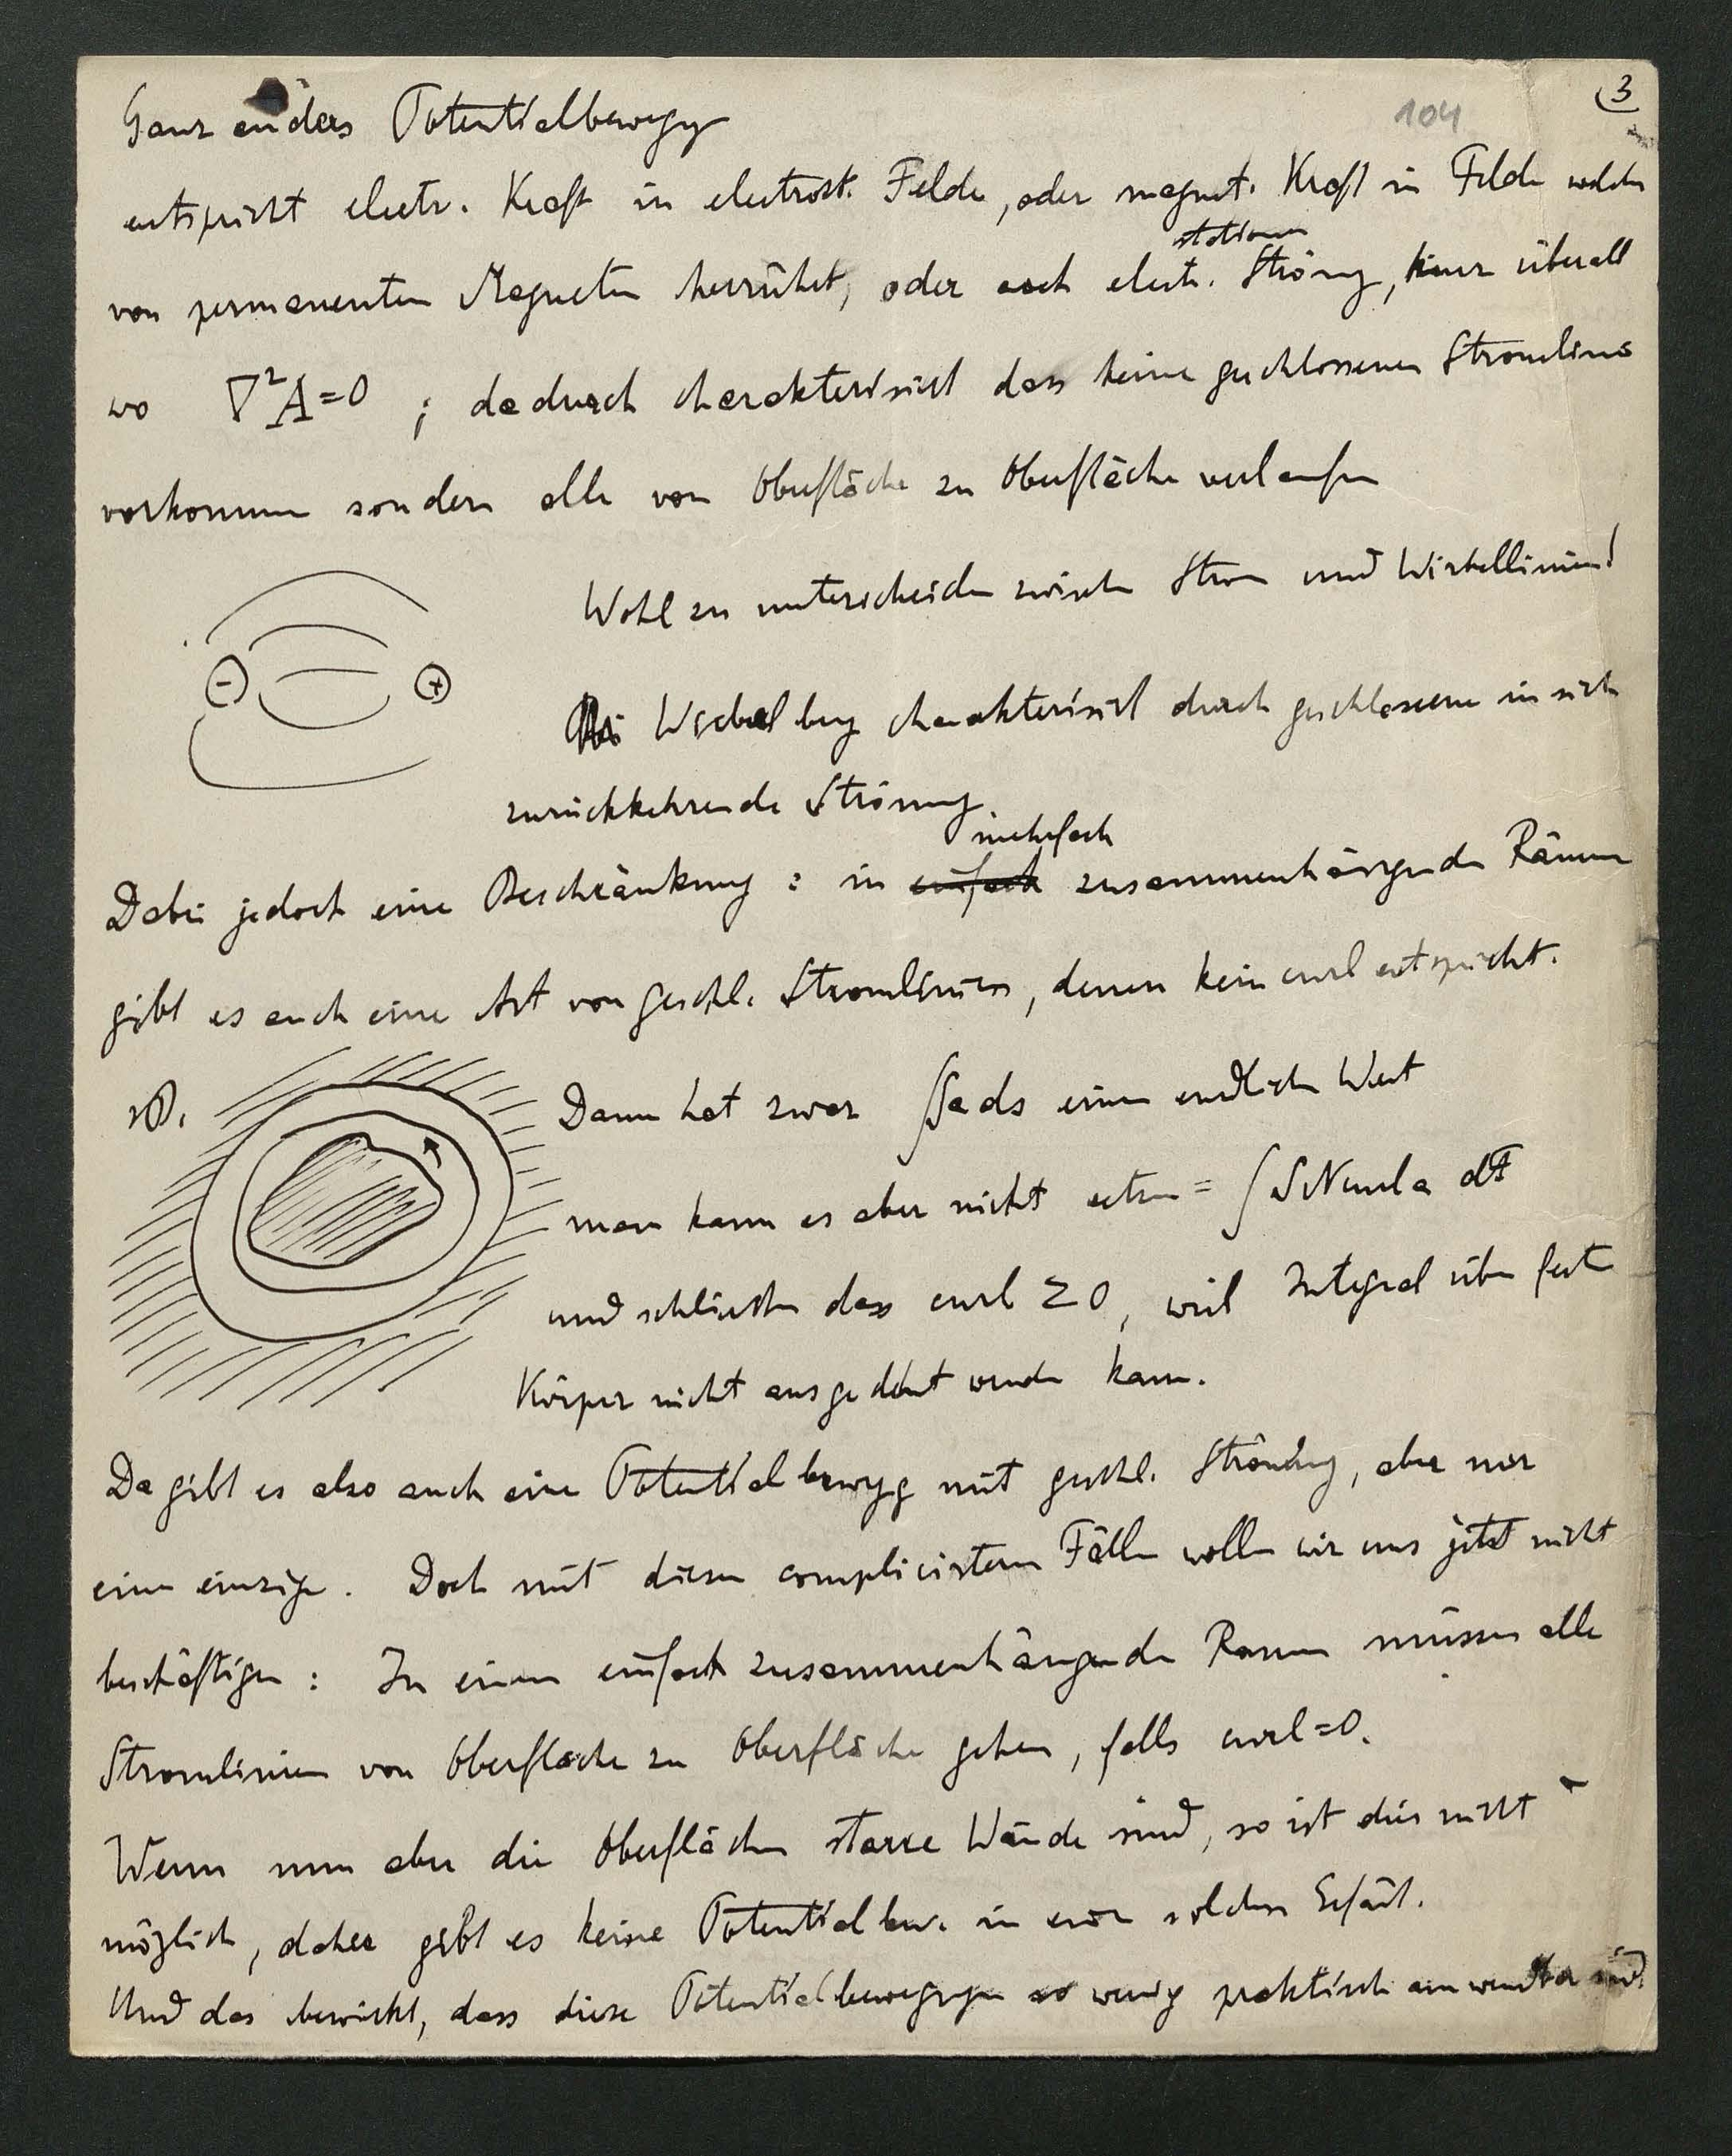 3
104
Ganz anders Potentialbewegg
entspricht electr. Kraft in electrost. Felde, oder magnet. Kraft in Felde welches
stationär
von permanenten Magneten herrührt, oder auch electr. Strömg, kurz überall
wo ∇²A=0 ; dadurch charakterisirt dass keine geschlossenen Stromlinien
vorkommen sondern alle von Oberfläche zu Oberfläche verlaufen
Wohl zu unterscheiden zwischen Strom und Wirbellinien!
- +
Wirbelbeg charakterisirt durch geschlossene in sich
zurückkehrende Strömung
mehrfach
Dabei jedoch eine Beschränkung : in einfach zusammenhängenden Räumen
gibt es auch eine Art von geschl. Stromlinien, denen kein curl entspricht.
zB. Dann hat zwar ∫Sads einen endlichen Wert
man kann es aber nicht setzen = ∫SNcurla df
und schliessen dass curl ≷0, weil Integral über feste
Körper nicht ausgedehnt werden kann.
Da gibt es also auch eine Potentialbewegg mit geschl. Strömung, aber nur
eine einzige. Doch mit diesen complicirteren Fällen wollen wir uns jetzt nicht
beschäftigen : In einem einfach zusammenhängenden Raum müssen alle
Stromlinien von Oberfläche zu Oberfläche gehen, falls curl=0.
Wenn nun aber die Oberflächen starre Wände sind, so ist dies nicht
möglich, daher gibt es keine Potentialbew. in einem solchen Gefäss.
Und das bewirkt, dass diese Potentialbewegungen so wenig praktisch anwendbar sind.